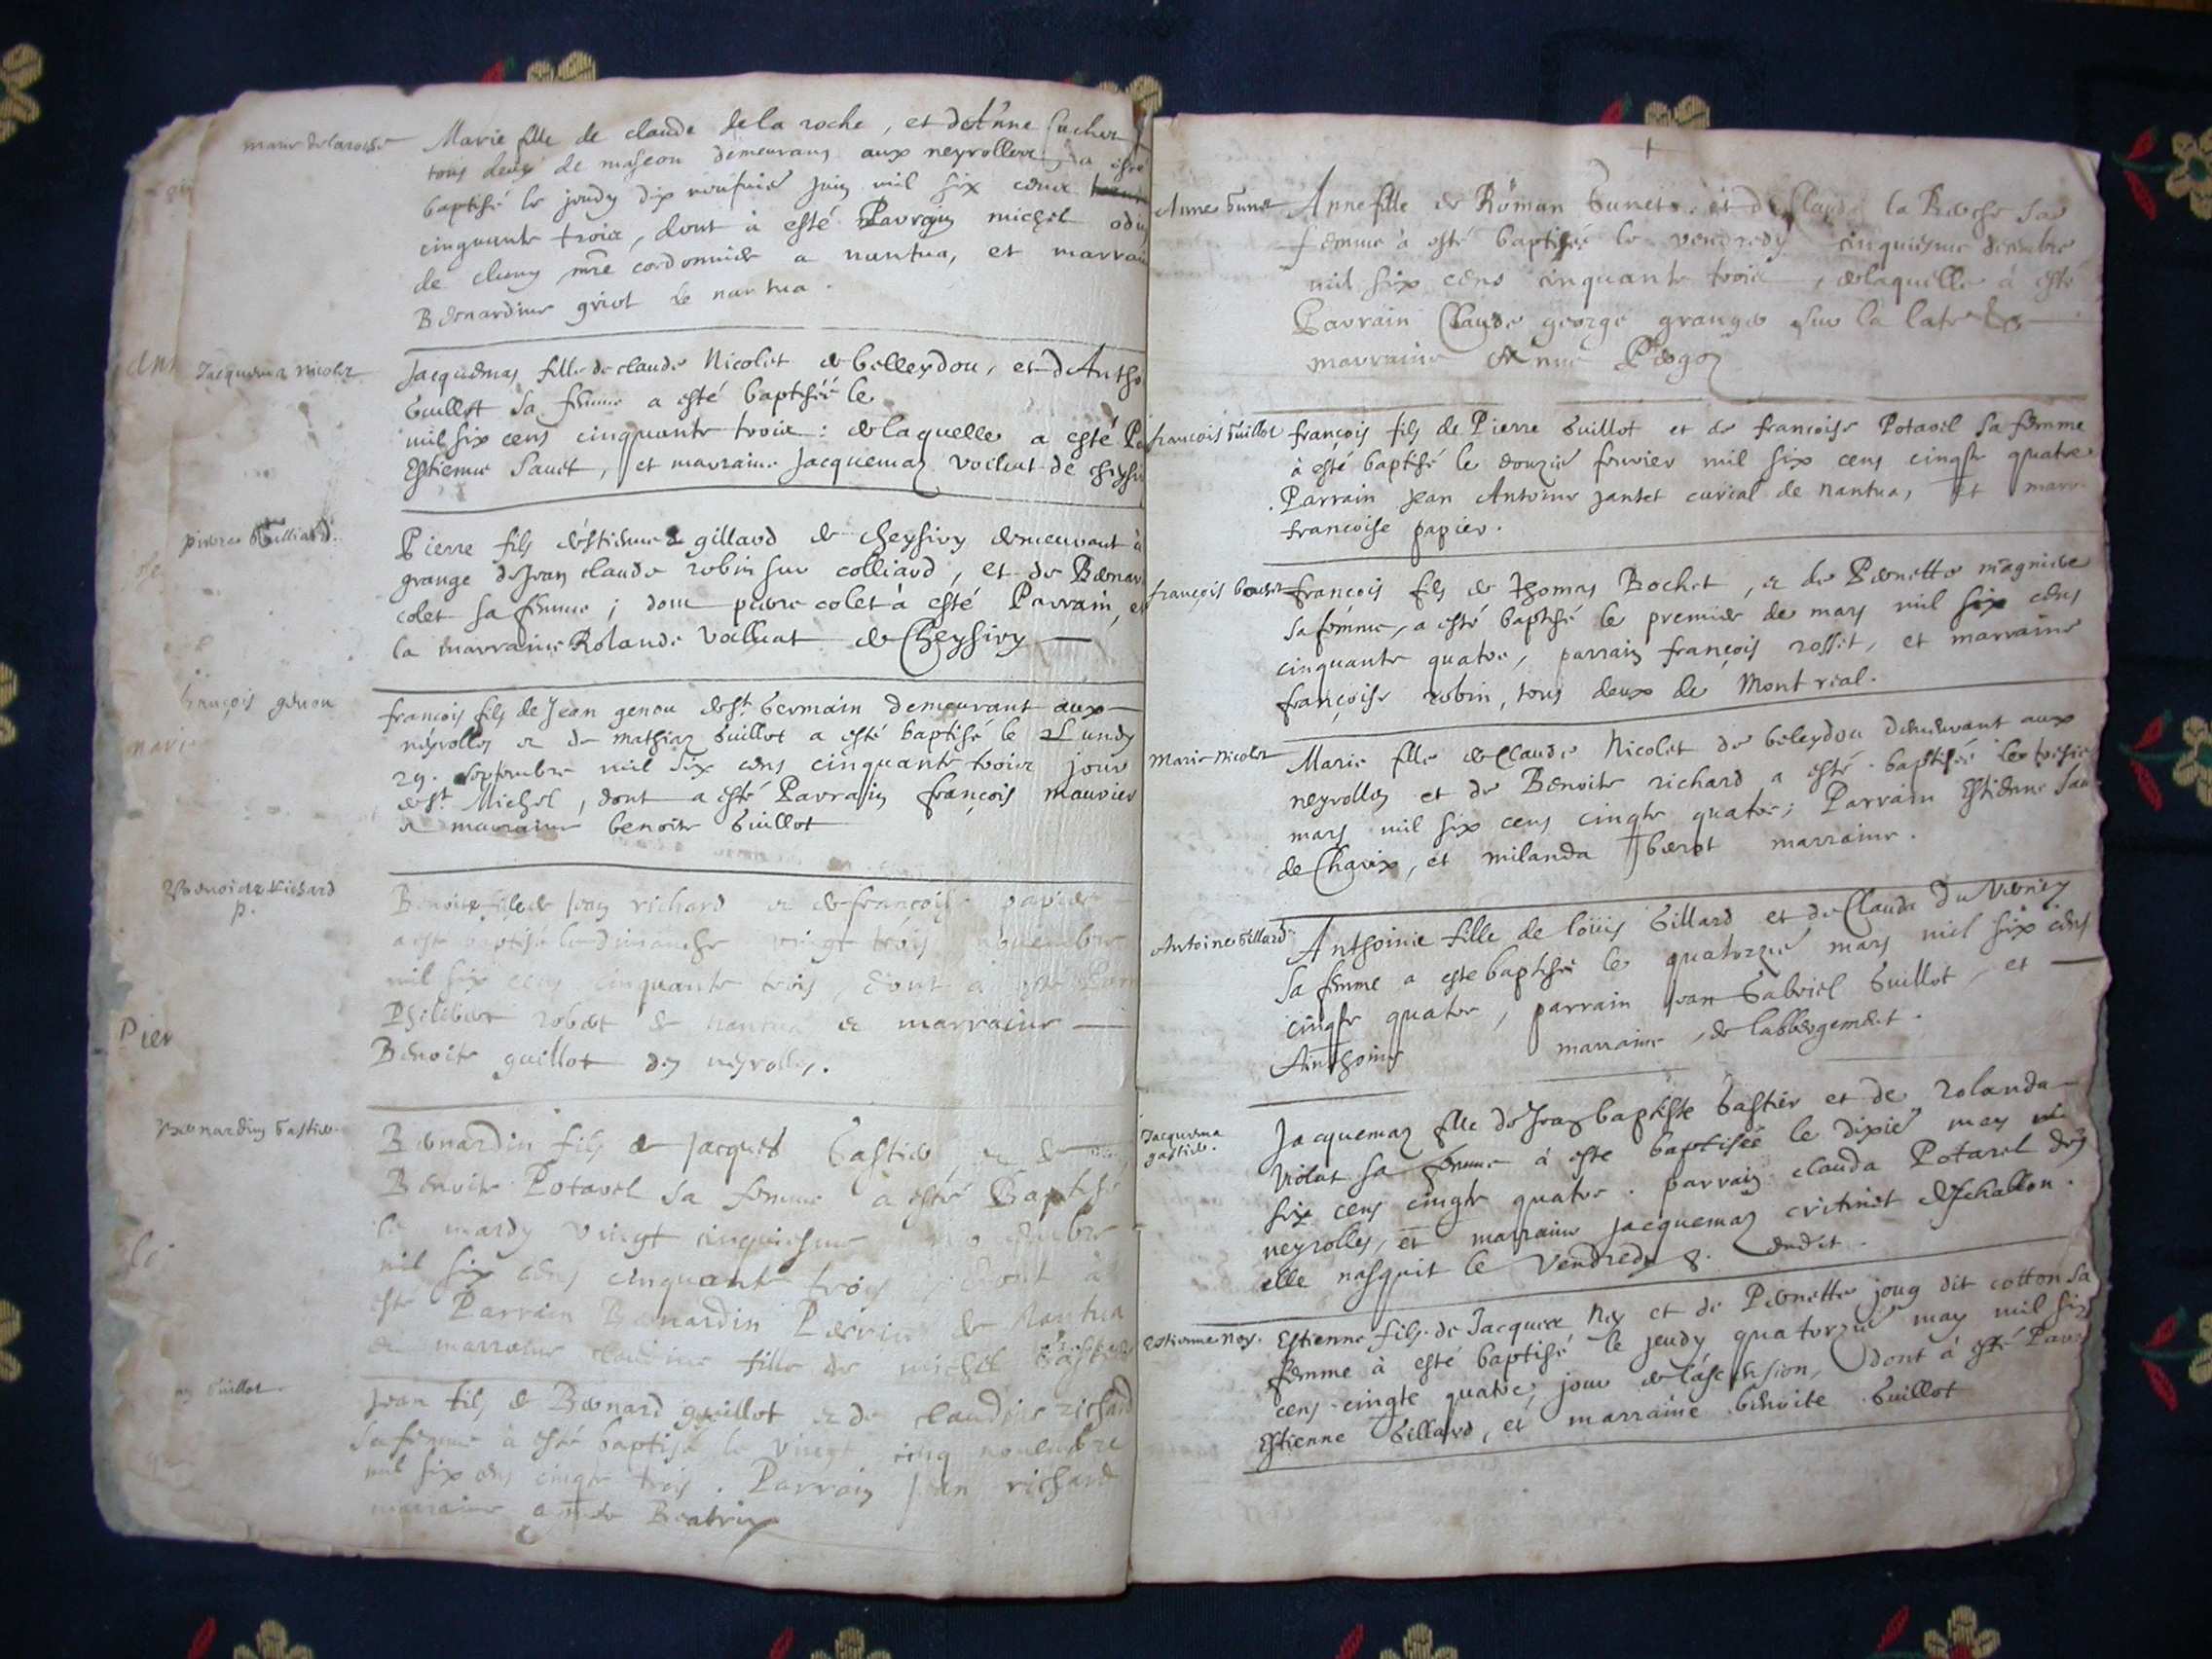 marie de laroche
Marie fille de claude de la roche, et d'Anne
tous deux de mascon demeurans aux neyrolles, a esté
baptisé le jeudy dix neufuié juin mil six cens
cinquante trois, dont à esté Parrain michel
de cluny mre cordonnier a nantua, et
Bernardine griot de nantua.
Jacquema nicolet
Jacquemaz fille de claude Nicolet de belleydou, et d'Antho
Guillot sa femme a esté baptiséé le
mil six cens cinquante troix : de laquelle a esté Pa
Estienne Sauct, et marraine Jacquemaz Volluat de
pierre Gilliard
Pierre fils d'estienne gillard de cheysiry demeurant à
grange de Jean claude robin sur colliard, et de Bernar
colet sa femme ; dont pierre colet à esté Parrain, et
la marraine Rolande Volluat de Cheysiry
françois genou
françois fils de Jean genou de st. Germain demeurant aux
neyrolles et de mathiaz Guillot a esté baptisé le Lundy
29. septembre mil six cens cinquante troix jour
de st. Michel, dont a esté Parrain françois mauvier
et marraine benoite Guillot
Benoite Richard
p.
Benoite fille de Jean richard et de françoise papier
a esté baptisé le dimanche vingt trois nouembre
mil six cens cinquante trois, dont a esté Parr
Philibert robert de nantua et marraine
Benoite guillot des neyrolles.
Bernardin Gastier
Bernardin fils de Jacques Gastier, et de
Benoite Potarel sa femme à esté Baptisé
le mardy vingt cinquiesme nouembre
mil six cens cinquante trois, dont à
esté Parrain Bernardin Perrin de Nantua
et marraine claudine fille de michel Gastier
Guillot.
Jean fils de Bernard guillot et de claudine richard
sa femme à esté baptisé le vingt cinq nouembre
mil six cens cinqte trois. Parrain Jean richard
marraine Beatrix
Anne
Anne fille de Roman et de Claude la Roche sa
femme à esté baptiséé le vendredy cinquiesme decembre
mil six cens cinquante trois, de laquelle à esté
Parrain Claude george grange sur la
marraine Anne
françois Guillot
françois fils de Pierre Guillot et de francoise Potarel sa femme
à esté baptisé le douzié feurier mil six cens cinqte quatre
Parrain Jean Antoine jantet curial de nantua, et marr
francoise papier.
françois bochet
françois fils de Thomas Bochet, et de Pernette magniere
sa femme, a esté baptisé le premier de mars mil six cens
cinquante quatre, parrain françois rosset, et marraine
françoise robin, tous deux de Montreal.
Marie Nicolet
Marie fille de Claude Nicolet de beleydou demeurant aux
neyrolles et de Benoite richard a esté baptiséé le
mars mil six cens cinqte quatre; Parrain Estienne
de Charix, et milanda marraine.
Antoine Gillard
Anthoinie fille de loüis Gillard et de Clauda du
sa femme a esté baptiséé le quatorzié mars mil six cens
cinqte quatre, parrain Jean Gabriel Guillot, et
Anthoine marraine, de labbergement.
Jacquema
gastier.
Jacquemaz fille de Jean baptiste Gastier et de rolanda
violat sa femme à esté baptiséé le dixié may
six cens cinqte quatre. parrain clauda Potarel des
neyrolles, et marraine Jacquemaz critinet d'eschallon.
elle nasquit le Vendredy 8. dudit.
Estienne Ney.
Estienne fils de Jacques Ney et de Pernette joug dit cotton sa
femme à esté baptisé le jeudy quatorzié may mil six
cens cinqte quatre, jour de l'ascension, dont à esté Parr
Estienne Gillard, et marraine benoite Guillot